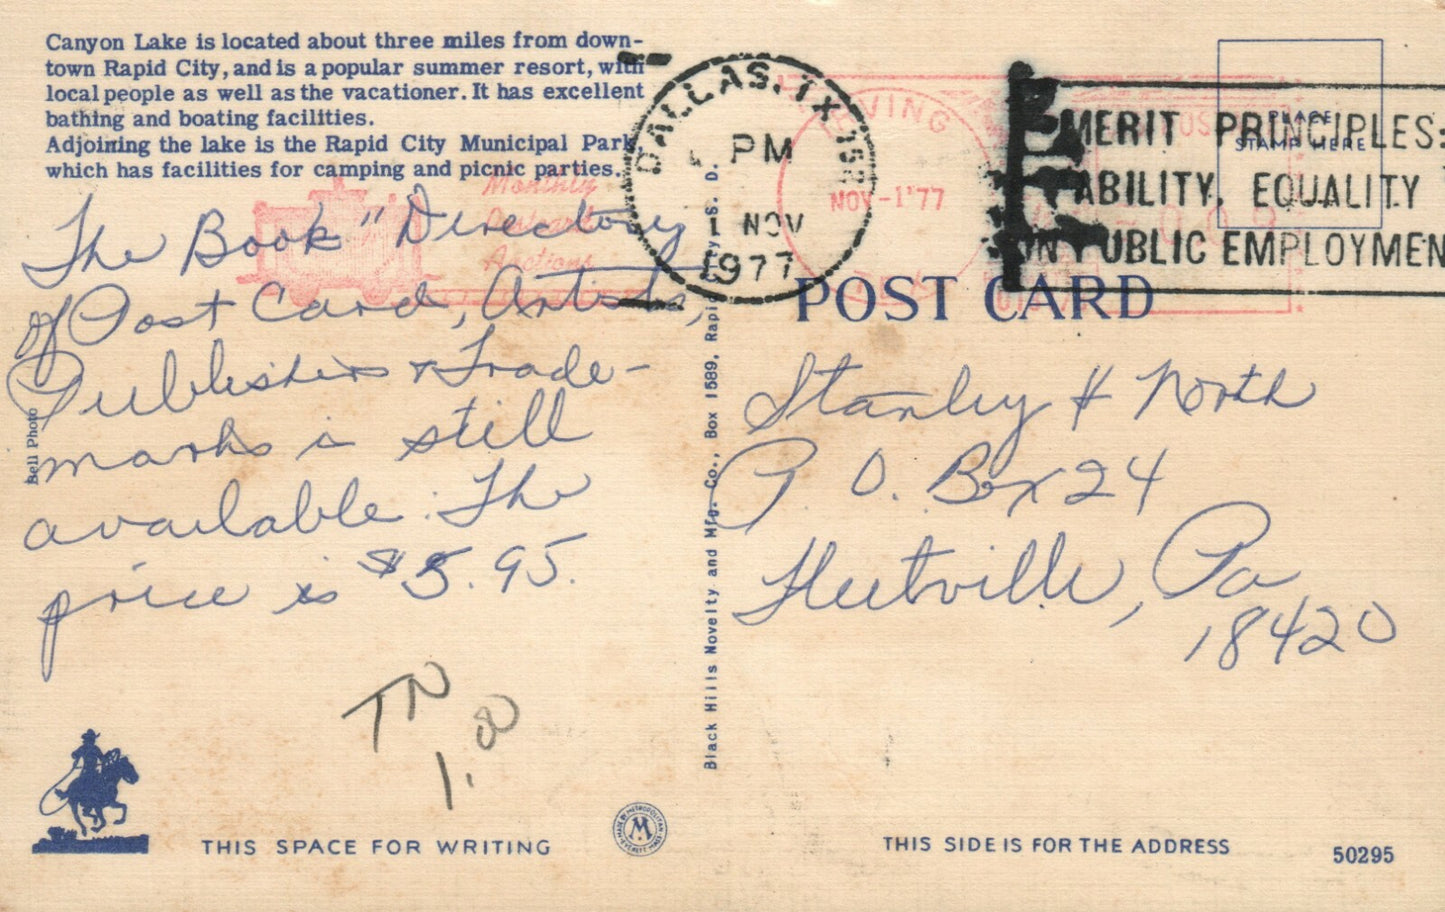 Canyon Lake is located about three miles from down-
town Rapid City, and is a popular summer resort, with
local people as well as the vacationer. It has excellent
bathing and boating facilities.
Adjoining the lake is the Rapid City Municipal Park
which has facilities for camping and picnic parties.
Monthly
Postcard
Auctions
DALLAS, TX 752
PM
1 NOV
1977
IRVING
NOV-1'77
TEX
MERIT PRINCIPLES:
ABILITY, EQUALITY
IN PUBLIC EMPLOYMEN
PLACE
STAMP HERE
POST CARD
The Book "Directory
of Post Card, Artists,
Publishers & Trade-
marks is still
available. The
price is $5.95.
Bell Photo
Black Hills Novelty and Mfg. Co., Box 1589, Rapid City, S. D.
Stanley H North
P O. Box 24
Fleetville, Pa
18420
TN
1.00
THIS SPACE FOR WRITING
MADE BY METROPOLITAN
M
EVERETT MASS
THIS SIDE IS FOR THE ADDRESS
50295